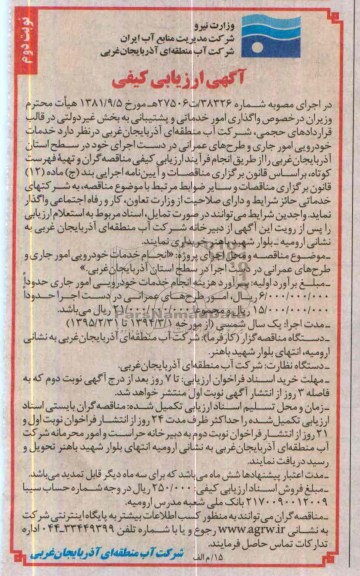 وزارت نیرو
شرکت مدیریت منابع آب ایران
شرکت آب منطقه‌ای آذربایجان‌غربی
نوبت دوم
آگهی ارزیابی کیفی
در اجرای مصوبه شماره ۳۸۳۲۶/ت۲۷۵۰۶هـ مورخ ۱۳۸۱/۹/۵ هیأت محترم
وزیران درخصوص واگذاری امور خدماتی و پشتیبانی به بخش غیردولتی در قالب
قراردادهای حجمی، شرکت آب منطقه‌ای آذربایجان‌غربی در نظر دارد خدمات
خودرویی امور جاری و طرح‌های عمرانی در دست اجرای خود در سطح استان
آذربایجان‌غربی را از طریق انجام فرآیند ارزیابی کیفی مناقصه‌گران و تهیه فهرست
کوتاه، براساس قانون برگزاری مناقصات و آیین‌نامه اجرایی بند (ج) ماده (۱۲)
قانون برگزاری مناقصات و سایر ضوابط مرتبط با موضوع مناقصه، به شرکتهای
خدماتی حائز شرایط و دارای صلاحیت از وزارت تعاون، کار و رفاه اجتماعی واگذار
نماید. واجدین شرایط می‌توانند در صورت تمایل، اسناد مربوط به استعلام ارزیابی
را پس از رویت این آگهی از دبیرخانه شرکت آب منطقه‌ای آذربایجان غربی به
نشانی ارومیه ـ بلوار شهید باهنر خریداری نمایند.
ـ موضوع مناقصه و محل اجرای پروژه: «انجام خدمات خودرویی امور جاری و
طرح‌های عمرانی در دست اجرا در سطح استان آذربایجان‌غربی.»
ـ مبلغ برآورد اولیه: برآورد هزینه انجام خدمات خودرویی امور جاری حدوداً
۶/۰۰۰/۰۰۰/۰۰۰ ریال، امور طرح‌های عمرانی در دست اجرا حدوداً
۱۵/۰۰۰/۰۰۰/۰۰۰ ریال و مجموعاً ۲۱/۰۰۰/۰۰۰/۰۰۰ ریال می‌باشد.
ـ مدت اجرا: یک سال شمسی (از مورخه ۱۳۹۴/۳/۱ تا ۱۳۹۵/۲/۳۱)
ـ دستگاه مناقصه‌گزار (کارفرما): شرکت آب منطقه‌ای آذربایجان‌غربی به نشانی
ارومیه، انتهای بلوار شهید باهنر.
ـ دستگاه نظارت: شرکت آب منطقه‌ای آذربایجان‌غربی.
ـ مهلت خرید اسناد فراخوان ارزیابی: تا ۷ روز بعد از درج آگهی نوبت دوم که به
فاصله ۳ روز از انتشار آگهی نوبت اول منتشر خواهد شد.
ـ زمان و محل تسلیم اسناد ارزیابی تکمیل شده: مناقصه‌گران بایستی اسناد
ارزیابی تکمیل‌شده را حداکثر ظرف مدت ۲۴ روز از انتشار فراخوان نوبت اول و
۲۱ روز از انتشار فراخوان نوبت دوم به دبیرخانه حراست و امور محرمانه شرکت
آب منطقه‌ای آذربایجان غربی به نشانی ارومیه انتهای بلوار شهید باهنر تحویل و
رسید دریافت نمایند.
ـ مدت اعتبار پیشنهادها شش ماه می‌باشد که برای سه ماه دیگر قابل تمدید می‌باشد.
ـ مبلغ فروش اسناد ارزیابی کیفی: ۲۵۰/۰۰۰ ریال در وجه شماره حساب سیبا
۲۱۷۰۰۹۰۰۱۲۰۰۹ بانک ملی شعبه مدرس ارومیه.
ـ مناقصه‌گران می‌توانند به منظور کسب اطلاعات بیشتر به پایگاه اینترنتی شرکت
به نشانی www.agrw.ir رجوع و یا با شماره تلفن ۰۴۴ـ۳۳۴۴۹۳۹۹ اداره
تدارکات تماس حاصل فرمایند.
۱۵/م الف
شرکت آب منطقه‌ای آذربایجان‌غربی